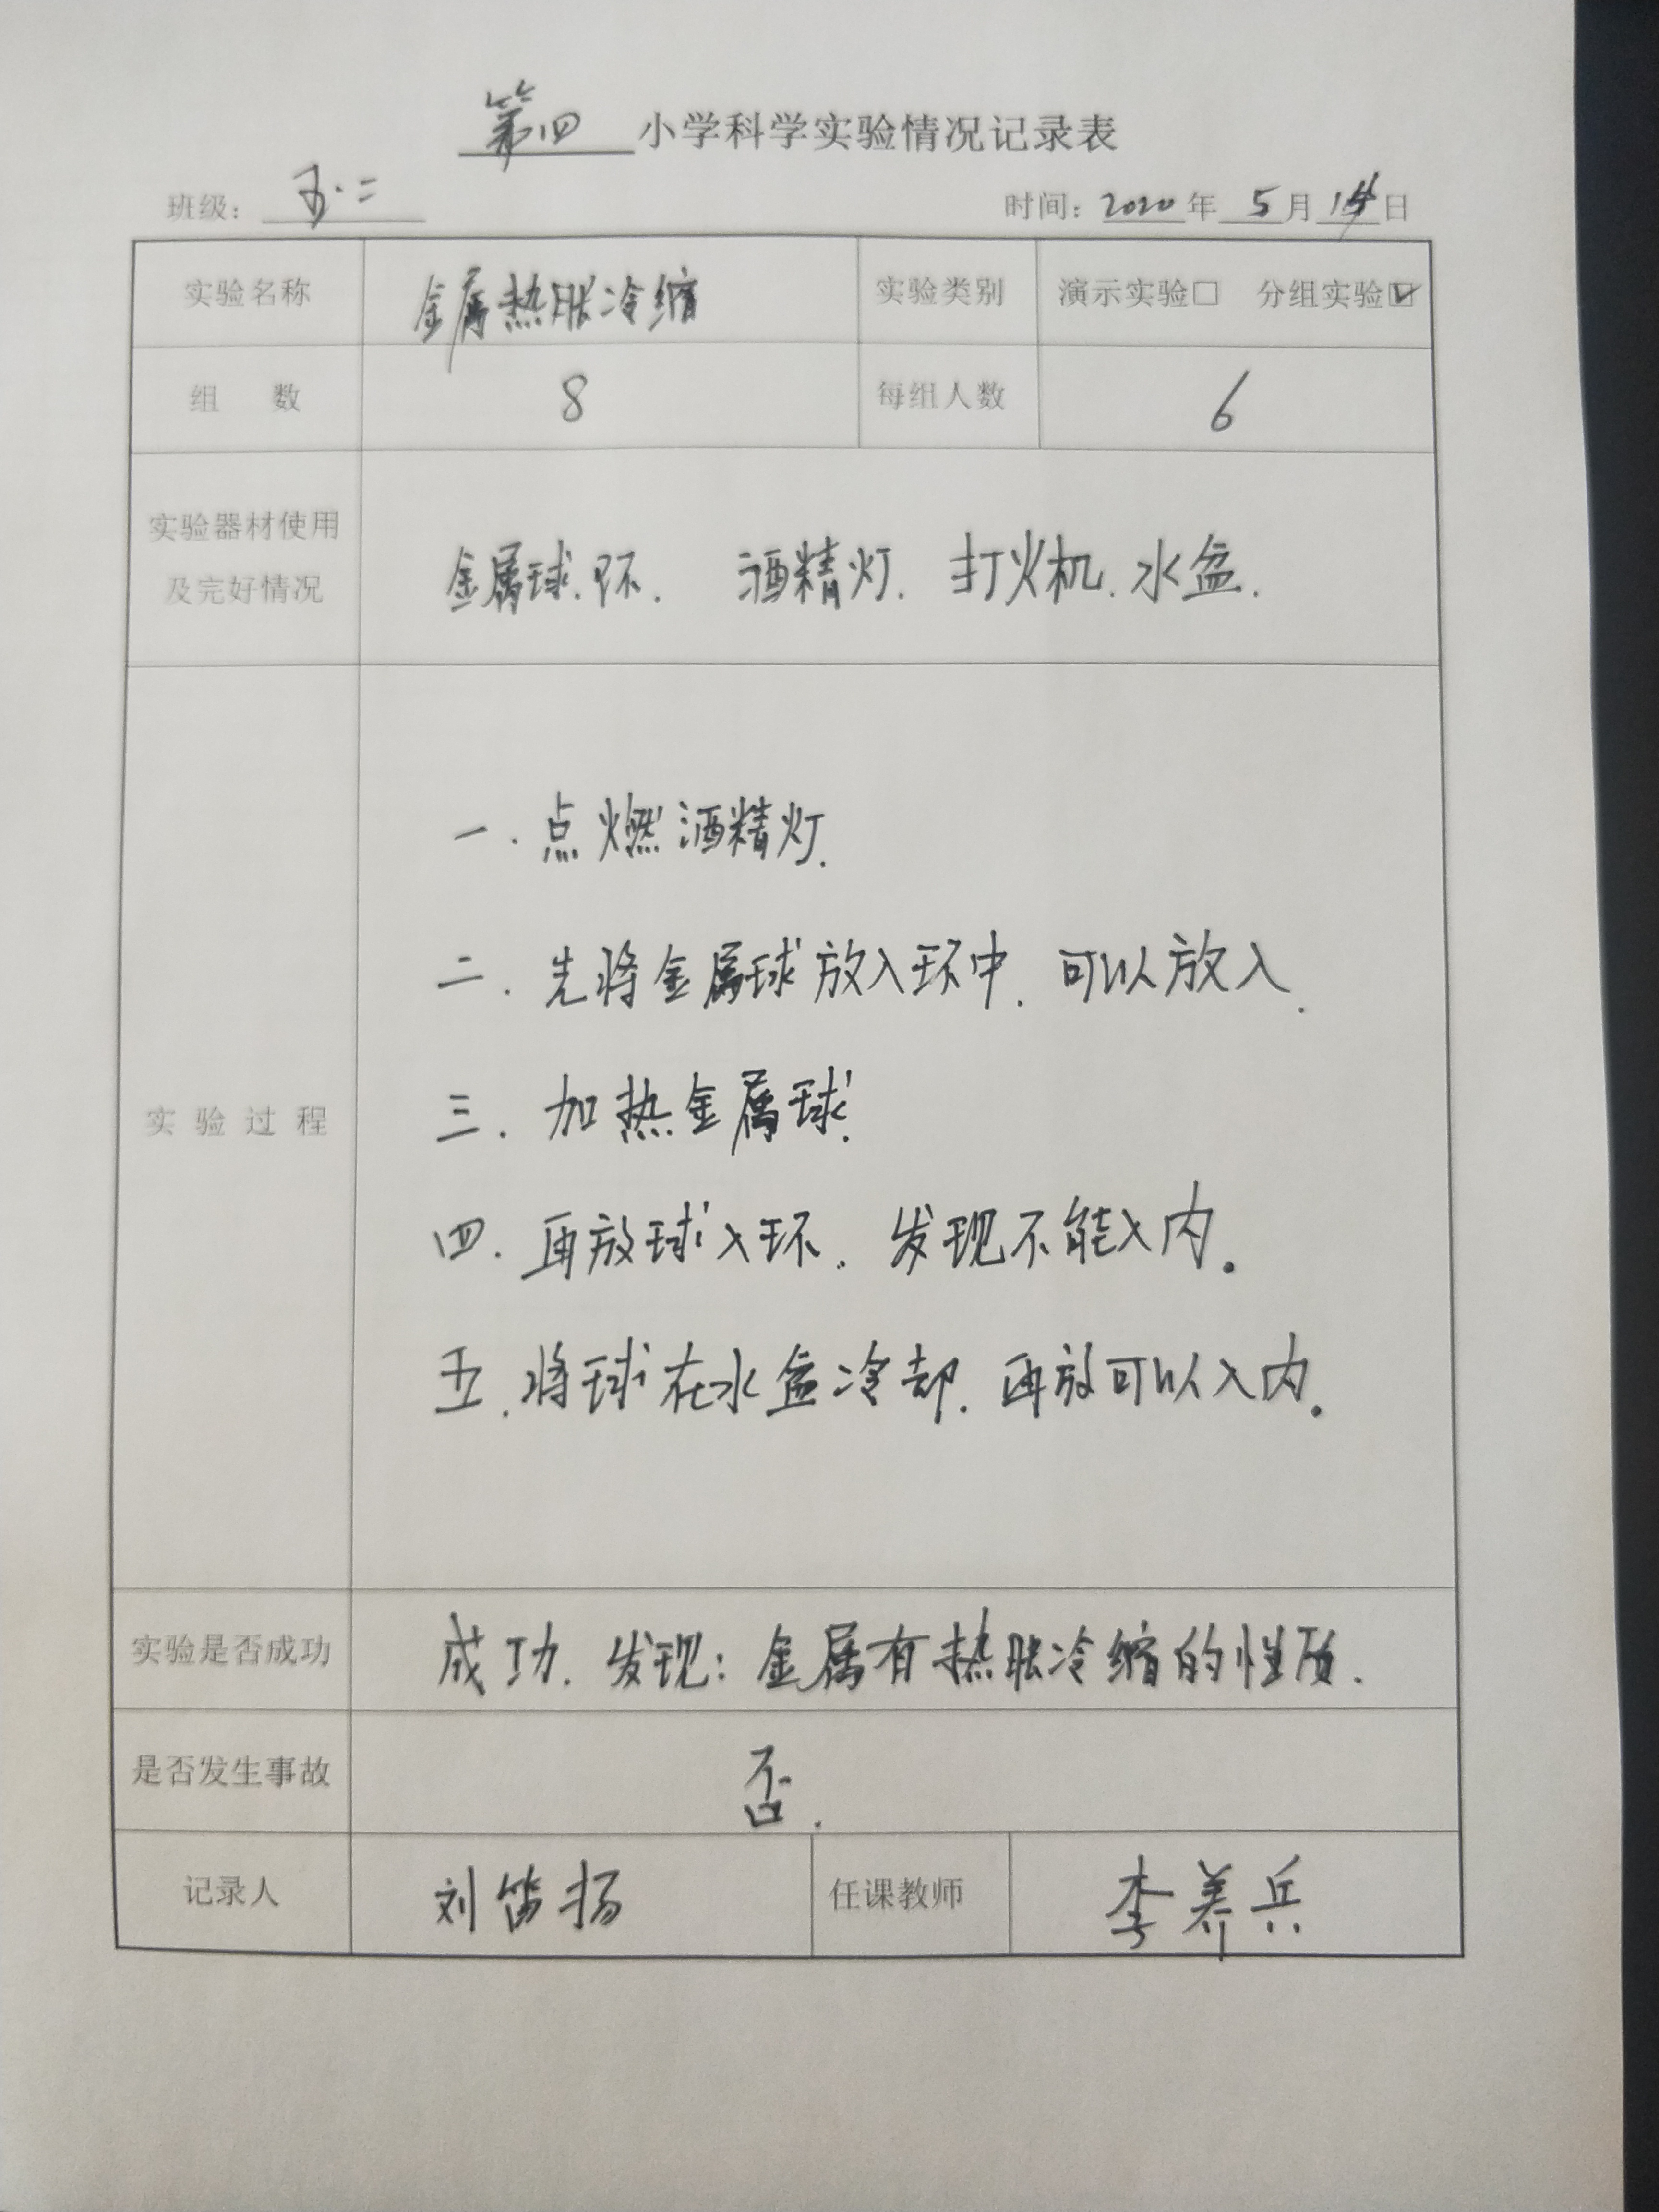 第四小学科学实验情况记录表
班级：五·二 时间：2020年5月14日
实验名称 金属热胀冷缩 实验类别 演示实验□ 分组实验☑
组 数 8 每组人数 6
实验器材使用
及完好情况
金属球.环. 酒精灯. 打火机.水盆.
实验过程
一.点燃酒精灯.
二.先将金属球放入环中.可以放入.
三.加热金属球.
四.再放球入环.发现不能入内。
五.将球在水盆冷却.再放可以入内。
实验是否成功 成功.发现：金属有热胀冷缩的性质.
是否发生事故 否.
记录人 刘笛扬 任课教师 李养兵